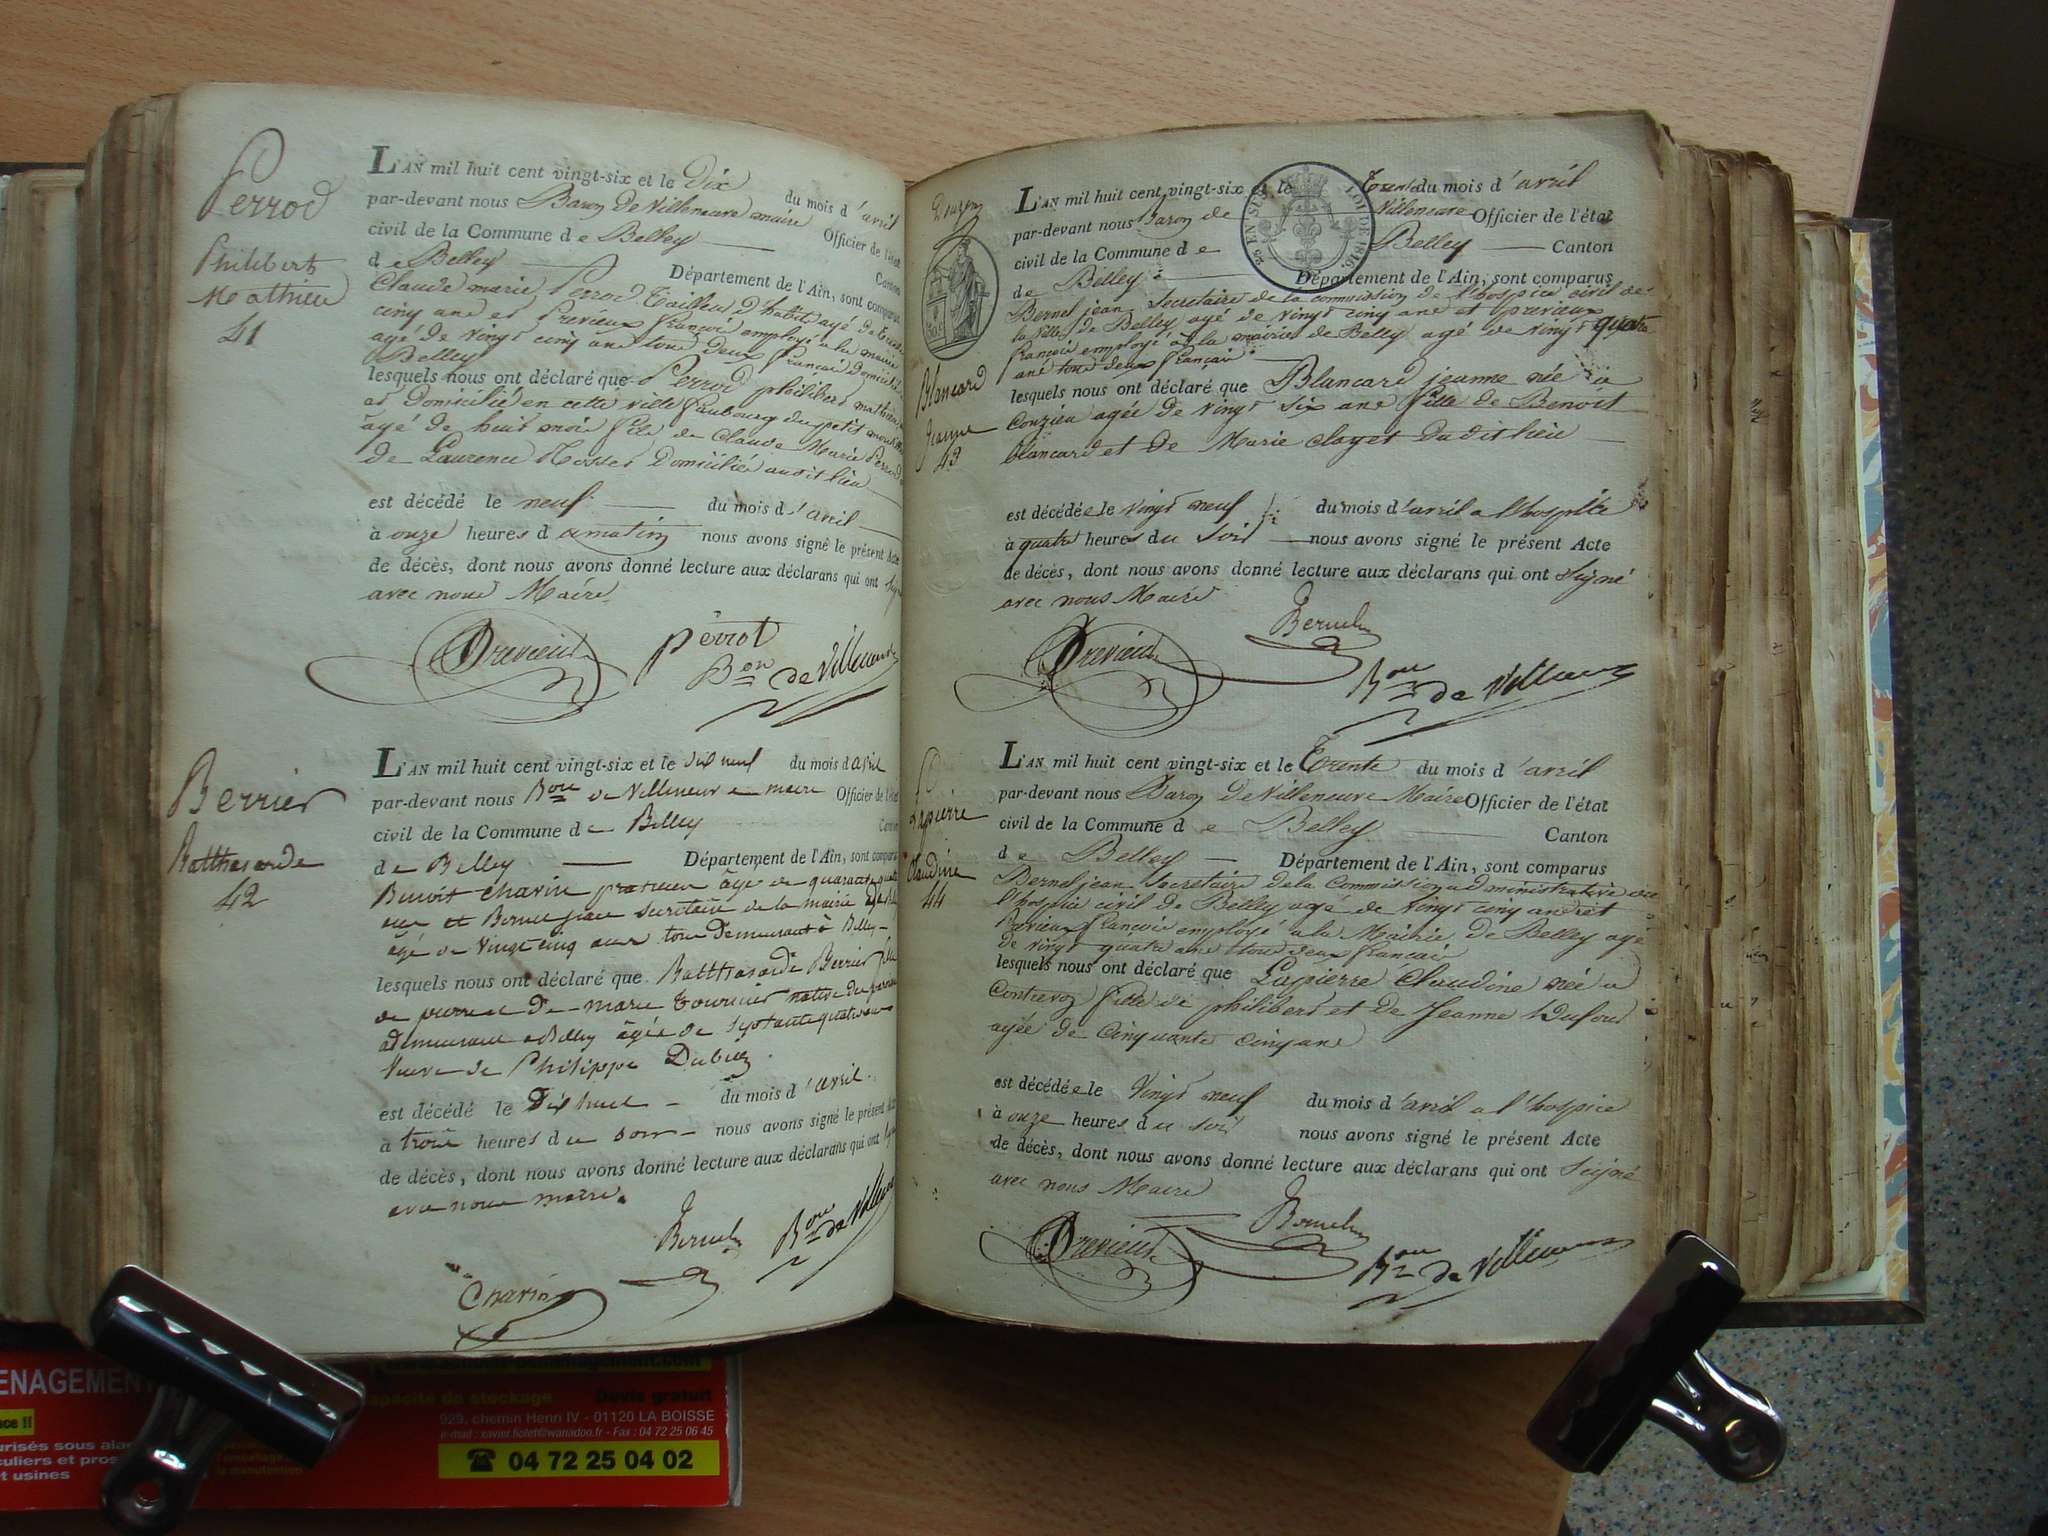 Perrod
Philibert
Mathieu
41
L'AN mil huit cent vingt-six et le Dix du mois d'avril
par-devant nous Baron De Villeneuve maire Officier de l'état
civil de la Commune de Belley Canton
de Belley Département de l'Ain, sont comparus
Claude marie Perrod Tailleur d'habit agé de Trente
cinq ans et Previeux françois employé a la mairie
agé de vingt cinq ans tous deux français Domiciliés
Belley
lesquels nous ont déclaré que Perrod philibert mathieu
et Domicilié en cette ville faubourg du petit
âgé de huit mois fils de Claude Marie Perrod
de Laurence Domiciliés audit lieu
est décédé le neuf du mois d'avril
à onze heures du matin nous avons signé le présent Acte
de décès, dont nous avons donné lecture aux déclarans qui ont signé
avec nous Maire
Previeux Perrot
Bon de Villeneuve
Berrier
Balthasarde
42
L'AN mil huit cent vingt-six et le dix neuf du mois d'avril
par-devant nous Bon de Villeneuve maire Officier de l'état
civil de la Commune de Belley Canton
de Belley Département de l'Ain, sont comparus
Benoit Chavin praticien âgé de quarante quatre
ans et Bernel jean secretaire de la mairie de
âgé de vingt cinq ans tous Demeurant à Belley
lesquels nous ont déclaré que Balthasarde Berrier fille
de pierre et De marie tournier native de
et Demeurant a Belley âgée de septante quatre ans
veuve de Philippe
est décédé le Dix huit du mois d'avril
à trois heures du soir nous avons signé le présent Acte
de décès, dont nous avons donné lecture aux déclarans qui ont signé
avec nous maire.
Bernel Bon de Villeneuve
Chavin
Douzen
25 EN SUS
LOI DE 1816
Blancard
Jeanne
43
L'AN mil huit cent vingt-six et le Trente du mois d'avril
par-devant nous Baron de Villeneuve Officier de l'état
civil de la Commune de Belley Canton
de Belley Département de l'Ain, sont comparus
Bernel jean Secretaire de la commission de l'hospice civil de
la ville de Belley agé de vingt cinq ans et previeux
françois employé à la mairie de Belley agé de vingt quatre
ans tous deux français
lesquels nous ont déclaré que Blancard jeanne née a
Couzieu agée de vingt six ans fille de Benoit
blancard et De Marie clayet dudit lieu
est décédée le vingt neuf du mois d'avril a l'hospice
à quatre heures du soir nous avons signé le présent Acte
de décès, dont nous avons donné lecture aux déclarans qui ont signé
avec nous Maire
Previeux Bernel
Bon de Villeneuve
Lapierre
Claudine
44
L'AN mil huit cent vingt-six et le Trente du mois d'avril
par-devant nous Baron De Villeneuve Maire Officier de l'état
civil de la Commune de Belley Canton
de Belley Département de l'Ain, sont comparus
Bernel jean Secretaire de la Commission administrative de
l'hospice civil de Belley agé de vingt cinq ans et
Previeux françois employé a la Mairie de Belley agé
de vingt quatre ans tous deux français
lesquels nous ont déclaré que Lapierre Claudine née a
Contrevoz fille de philibert et De Jeanne Dufour
agée de Cinquante cinq ans
est décédée le vingt neuf du mois d'avril a l'hospice
à onze heures du soir nous avons signé le présent Acte
de décès, dont nous avons donné lecture aux déclarans qui ont Signé
avec nous Maire
Previeux Bernel
Bon de Villeneuve
ENAGEMENT
capacité de stockage Devis gratuit
929, chemin Henri IV - 01120 LA BOISSE
e-mail : xavier.fiolet@wanadoo.fr - Fax : 04 72 25 06 45
04 72 25 04 02